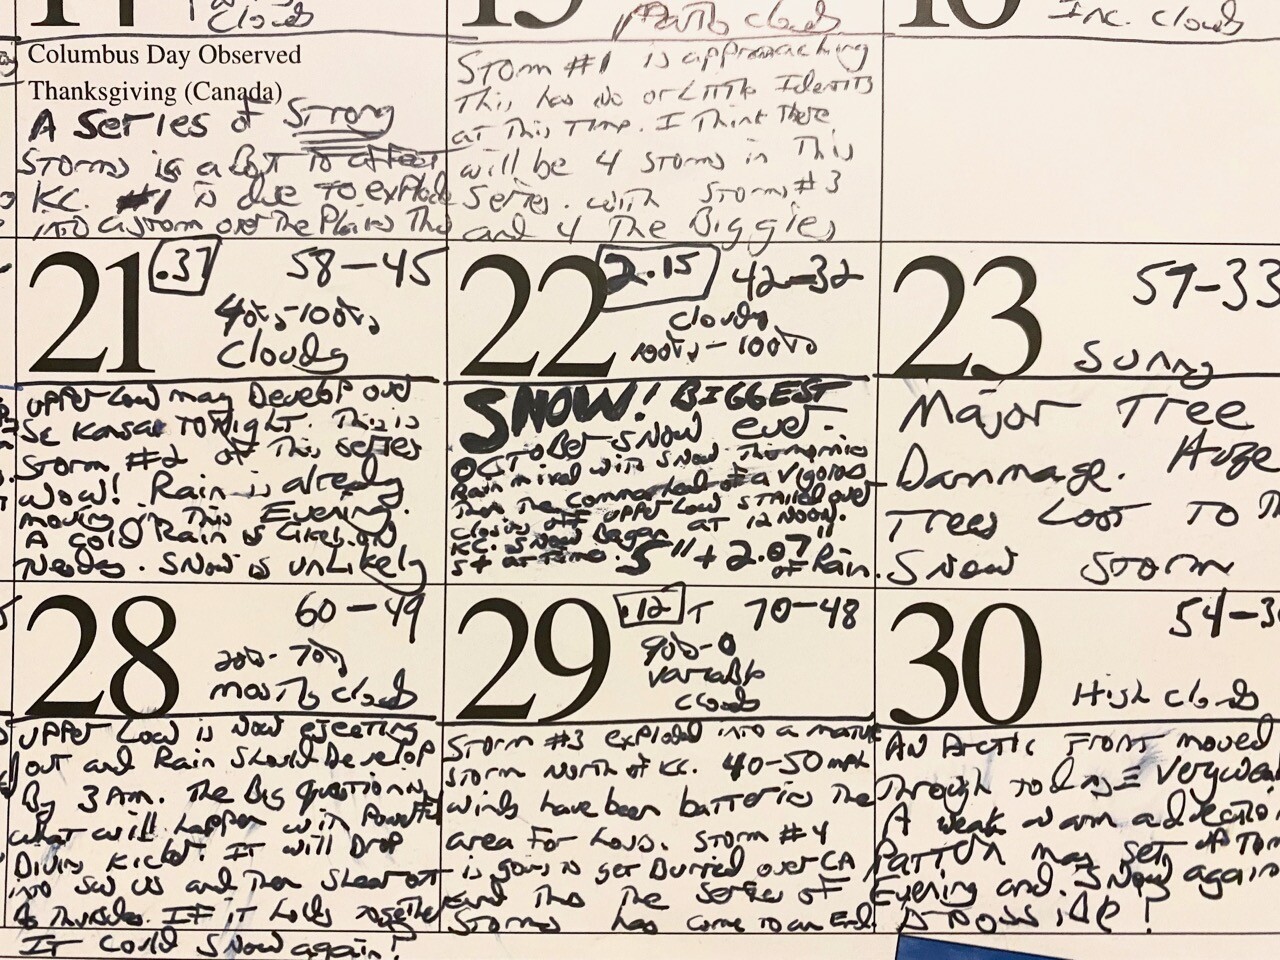 14
Clouds
15
Partly clouds
16
Inc. clouds
Columbus Day Observed
Thanksgiving (Canada)
A series of Strong
Storms is about to affect
KC. #1 is due to explode
into a storm over the Plains Thu
Storm #1 is approaching
This has no or Little Identity
at This Time. I Think There
will be 4 storms in This
series. with Storms #3
and 4 The Biggies
21
.37
58-45
400s-100s
Cloudy
Upper Low may Develop over
SE Kansas Tonight. This is
Storm #2 of This series
Wow! Rain is already
moving in This Evening.
A cold Rain is Likely on
Tuesday. Snow is unlikely
22
2.15
42-32
Cloudy
100s-100s
SNOW! BIGGEST
OCTOBER SNOW ever.
Rain mixed with snow
Then The Comma head of a Vigorous
closing off upper Low STalled over
KC. Snow Began AT 12 NOON.
5" + 2.07"
of Rain.
23
57-33
Sunny
Major Tree
Dammage. Huge
Trees Lost To Th
Snow Storm
28
60-49
200-700s
mostly clouds
Upper Low is Now ejecting
out and Rain should Develop
By 3 AM. The Big Question
what will happen with Powerful
Diving Kicker. IT will Drop
into SW US and Then Shear out
by Thursday. If it holds together
IT could Snow again!
29
.12
T
70-48
900-0
variable
clouds
Storm #3 exploded into a mature
storm North of KC. 40-50 mph
winds have been battering The
area For hours. Storm #4
is going to get Buried over CA
and Thus The series of
Storms has come to an End.
30
54-3
High clouds
AN Arctic Front moved
Through today Very weak
A weak warm advection
Pattern may set up Tom
Evening and Snow again
is possible!